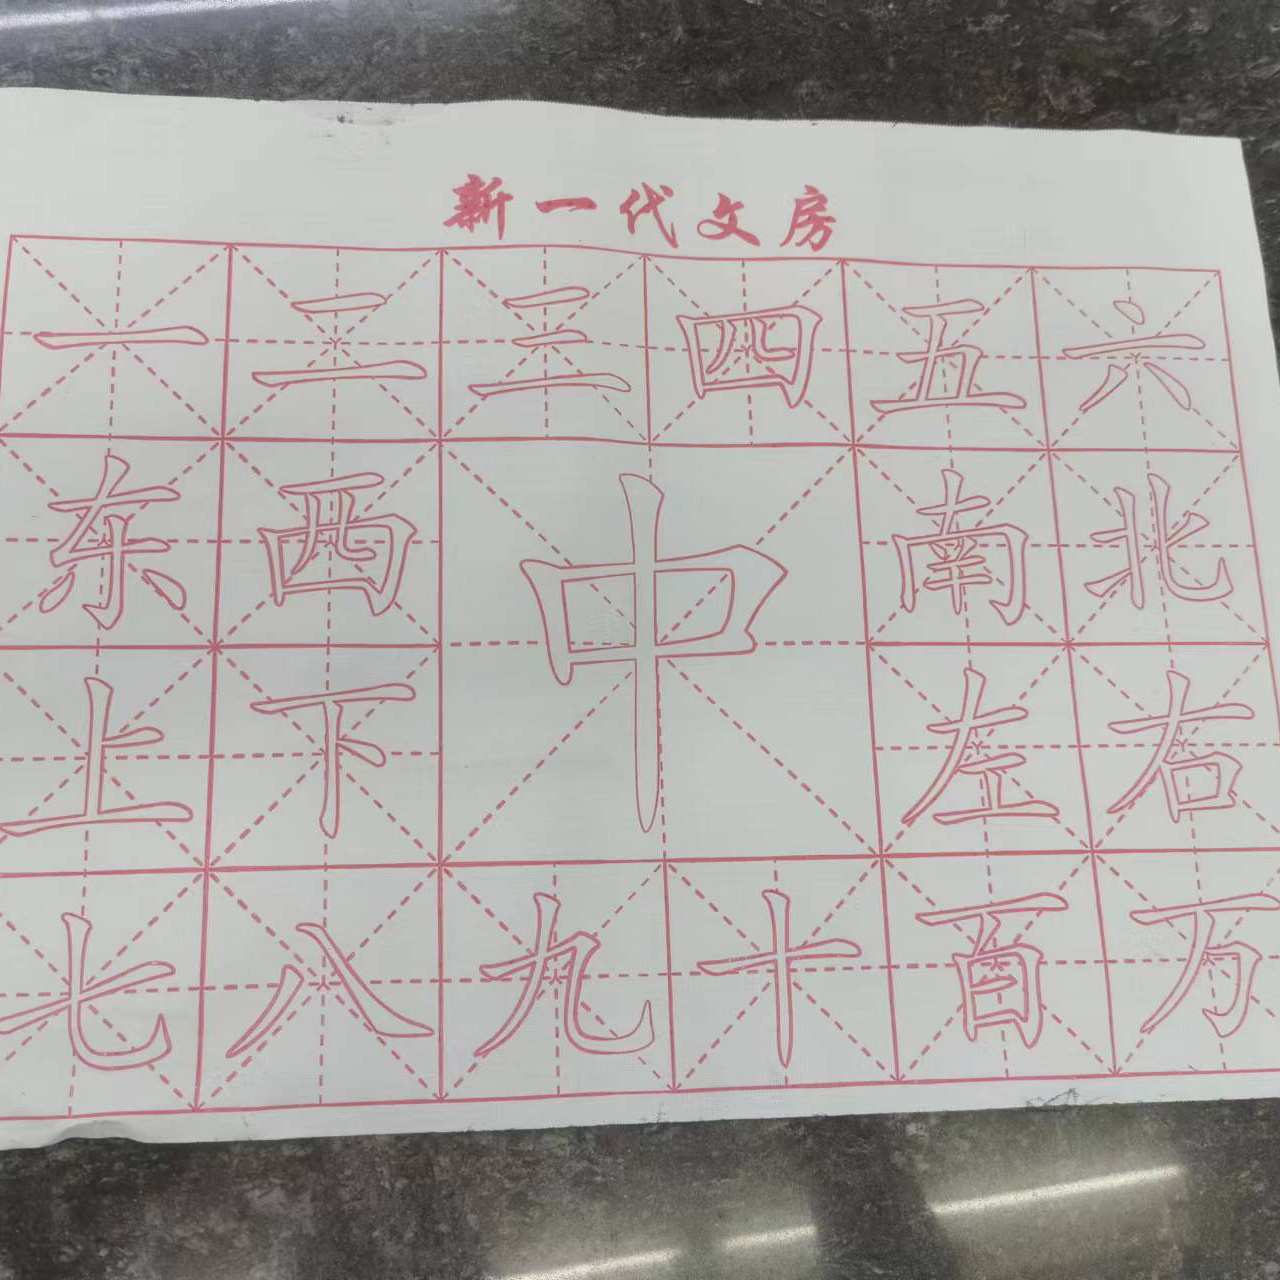 新一代文房
一 二 三 四 五 六
东 西 中 南 北
上 下 左 右
七 八 九 十 百 万